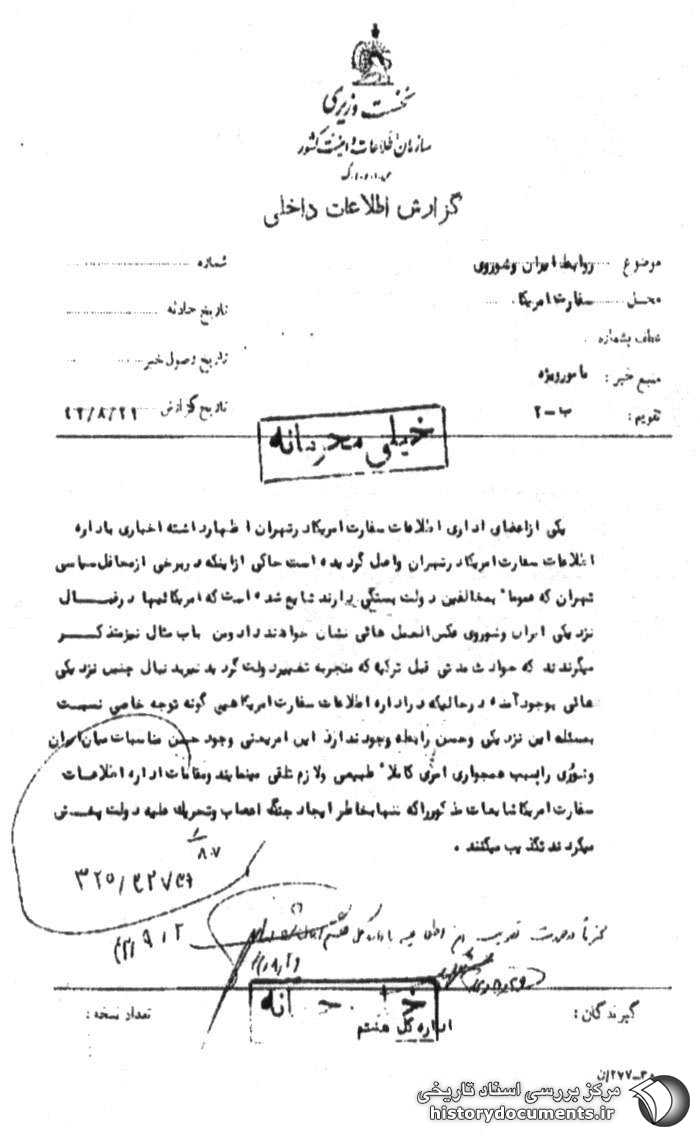 نخست وزیری
سازمان اطلاعات و امنیت کشور
س.ا.و.ا.ک
گزارش اطلاعات داخلی
موضوع روابط ایران وشوروی
شماره
محل سفارت امریکا
تاریخ حادثه
عطف بشماره
تاریخ وصول خبر
منبع خبر : مامورویژه
تاریخ گزارش
تقویم : ب-۲
خیلی محرمانه
یکی ازاعضای اداری اطلاعات سفارت امریکادرتهران اظهارداشته اخباری باداره
اطلاعات سفارت امریکادرتهران واصل گردیده است حاکی ازاینکه دربرخی ازمحافل سیاسی
تهران که عموما" بمخالفین دولت بستگی دارند شایع شده است که امریکائیها درقبال
نزدیکی ایران وشوروی عکس العمل هائی نشان خواهند دادومن باب مثال نیزمتذکر
میگردند که حوادث مدتی قبل ترکیه که منجربه تغییردولت گردید نیزبدنبال چنین نزدیکی
هائی بوجودآمده درحالیکه دراداره اطلاعات سفارت امریکاهیچ گونه توجه خاصی نسبت
بمسئله این نزدیکی وحسن رابطه وجودندارد این امریعنی وجود حسن مناسبات میان ایران
وشوروی رابسبب همجواری امری کاملا" طبیعی ولازم تلقی مینمایند ومقامات اداره اطلاعات
سفارت امریکاشایعات مذکورراکه تنهابخاطر ایجاد جنگ اعصاب وتحریک علیه دولت پخش
میگردد تکذیب میکنند .
گیرندگان :
تعداد نسخه :
اداره کل هشتم
مرکز بررسی اسناد تاریخی
historydocuments.ir